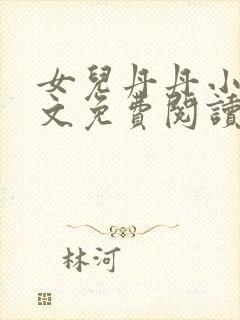 女兒丹丹小
文免費閱讀
林河